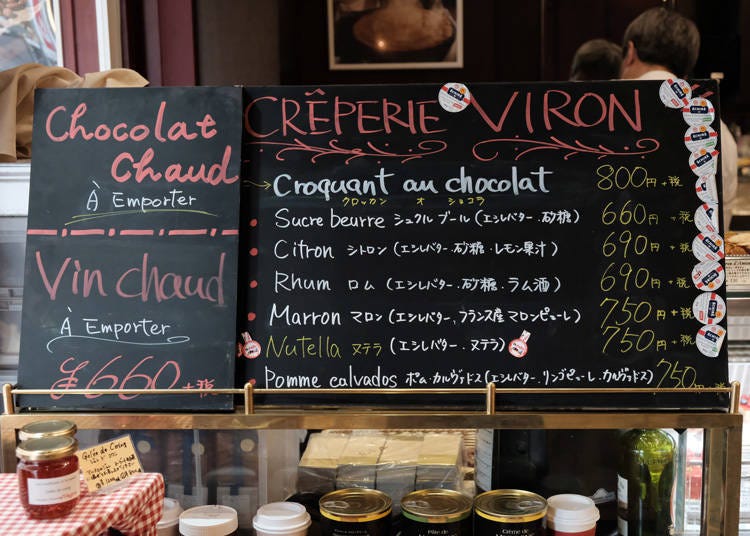 Chocolat
Chaud
À Emporter
Vin chaud
À Emporter
¥660+税
CRÊPERIE VIRON
→Croquant au chocolat 800円+税
クロッカン オ ショコラ
• Sucre beurre シュクル ブール (エシレバター・砂糖) 660円+税
• Citron シトロン (エシレバター・砂糖・レモン果汁) 690円+税
• Rhum ロム (エシレバター・砂糖・ラム酒) 690円+税
• Marron マロン (エシレバター、フランス産マロンピューレ) 750円+税
Nutella ヌテラ (エシレバター・ヌテラ) 750円+税
Pomme calvados ポム・カルヴァドス (エシレバター・リンゴピューレ・カルヴァドス) 750円
Gelée de Coing
Pâté de
Crème de